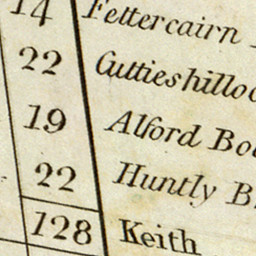 14 Fettercairn
22 Guttieshilloc
19 Alford Bo
22 Huntly B
128 Keith